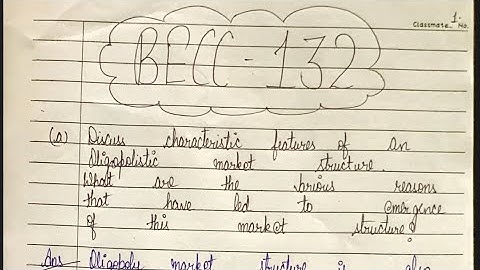 Classmate 1. No.
BECC-132
(a) Discuss characteristic features of an
Oligopolistic market structure.
What are the various reasons
that have led to emergence
of this market structure?
Ans - Oligopoly market structure is also